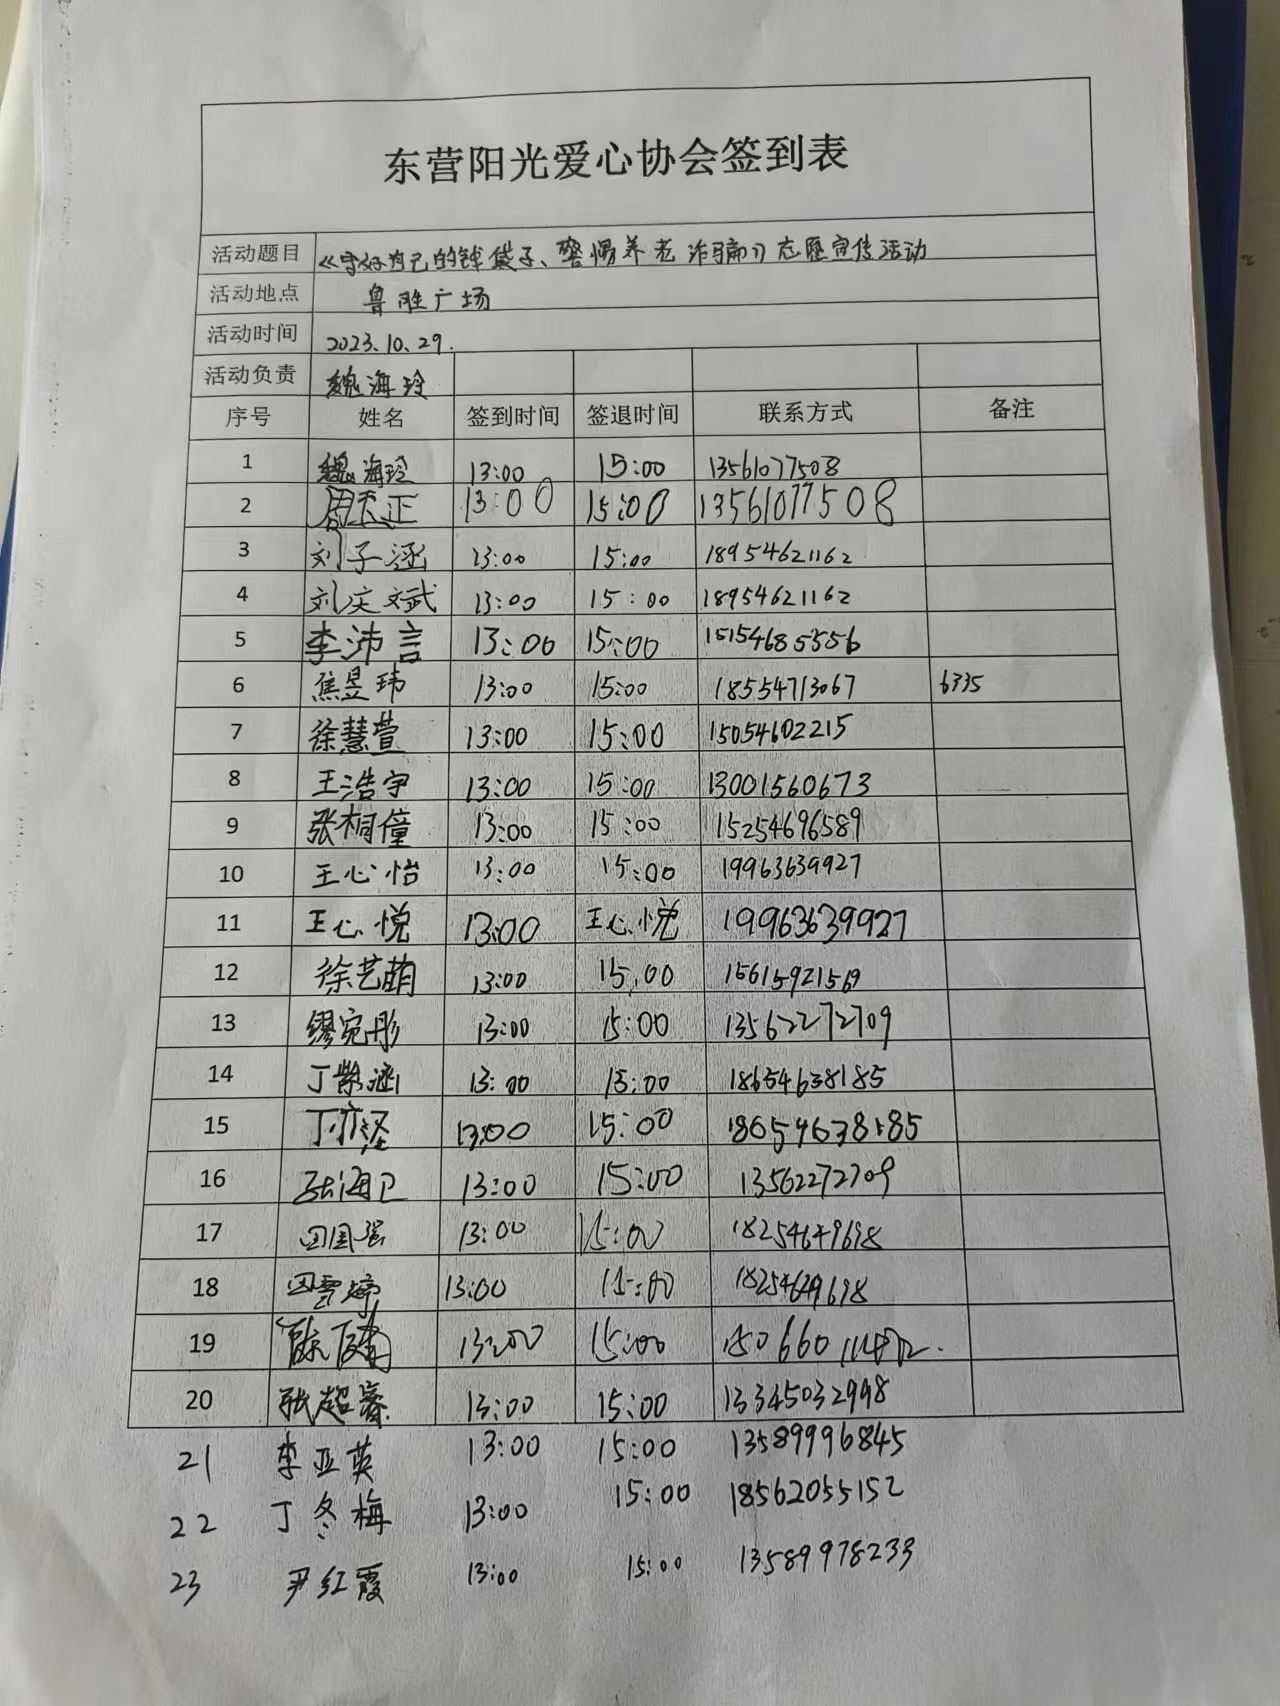 东营阳光爱心协会签到表
活动题目 《守好自己的钱袋子、警惕养老诈骗》志愿宣传活动
活动地点 鲁胜广场
活动时间 2023.10.29.
活动负责 魏海玲
序号 姓名 签到时间 签退时间 联系方式 备注
1 魏海玲 13:00 15:00 13561077508
2 周天正 13:00 15:00 13561077508
3 刘子涵 13:00 15:00 18954621162
4 刘庆斌 13:00 15:00 18954621162
5 李沛言 13:00 15:00 15154685556
6 焦昱玮 13:00 15:00 18554713067 6335
7 徐慧萱 13:00 15:00 15054602215
8 王浩宇 13:00 15:00 13001560673
9 张桐僮 13:00 15:00 15254696589
10 王心怡 13:00 15:00 19963639927
11 王心悦 13:00 王心悦 19963639927
12 徐艺萌 13:00 15:00 15615921569
13 缪宛彤 13:00 15:00 13562272709
14 丁紫涵 13:00 15:00 18654638185
15 13:00 15:00 18654638185
16 张海卫 13:00 15:00 13562272709
17 田国强 13:00 15:00 18254649698
18 田雯婷 13:00 15:00 18254649698
19 陈健 13:00 15:00
20 张超睿 13:00 15:00 13345032998
21 李亚英 13:00 15:00 13589996845
22 丁冬梅 13:00 15:00 18562055152
23 尹红霞 13:00 15:00 13589978233